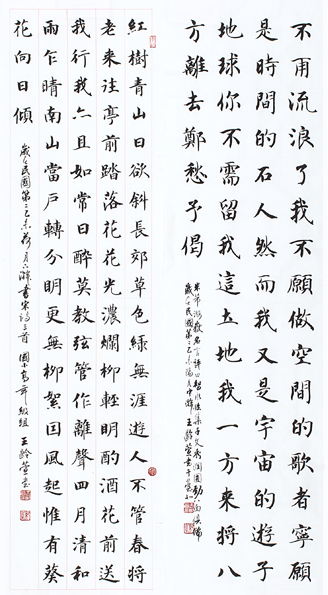 不再流浪了我不願做空間的歌者寧願
是時間的石人然而我又是宇宙的遊子
地球你不需留我這土地我一方來將八
方離去鄭愁予偈
紅樹青山日欲斜長郊草色綠無涯遊人不管春將
老來往亭前踏落花花光濃爛柳輕明酌酒花前送
我行我亦且如常日醉莫教弦管作離聲四月清和
雨乍晴南山當戶轉分明更無柳絮因風起惟有葵
花向日傾
書宋詩三首 國小高年級組 王齡萱書